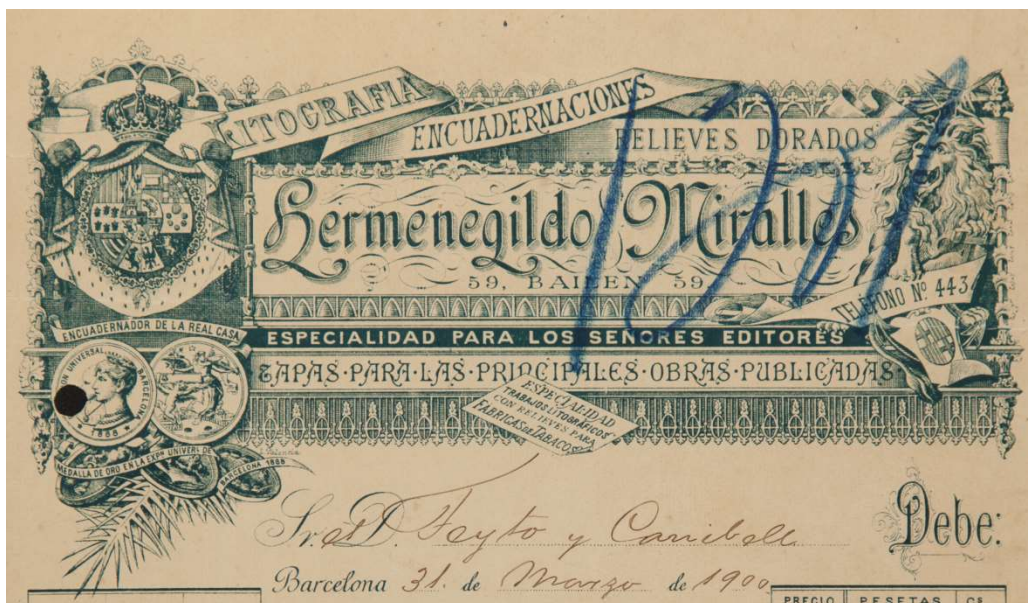 LITOGRAFIA
ENCUADERNACIONES
RELIEVES DORADOS
Hermenegildo Miralles
59, BAILEN 59
TELÉFONO Nº 443
ENCUADERNADOR DE LA REAL CASA
ESPECIALIDAD PARA LOS SEÑORES EDITORES
TAPAS·PARA·LAS·PRINCIPALES·OBRAS·PUBLICADAS
ESPECIALIDAD
TRABAJOS LITOGRÁFICOS
CON RELIEVES PARA
FABRICAS DE TABACOS
UNIVERSAL BARCELONA
1888
MEDALLA DE ORO EN LA EXPN UNIVERL DE
BARCELONA 1888
Valencia
Debe:
Barcelona 31. de Marzo de 1900
PRECIO PESETAS Cs